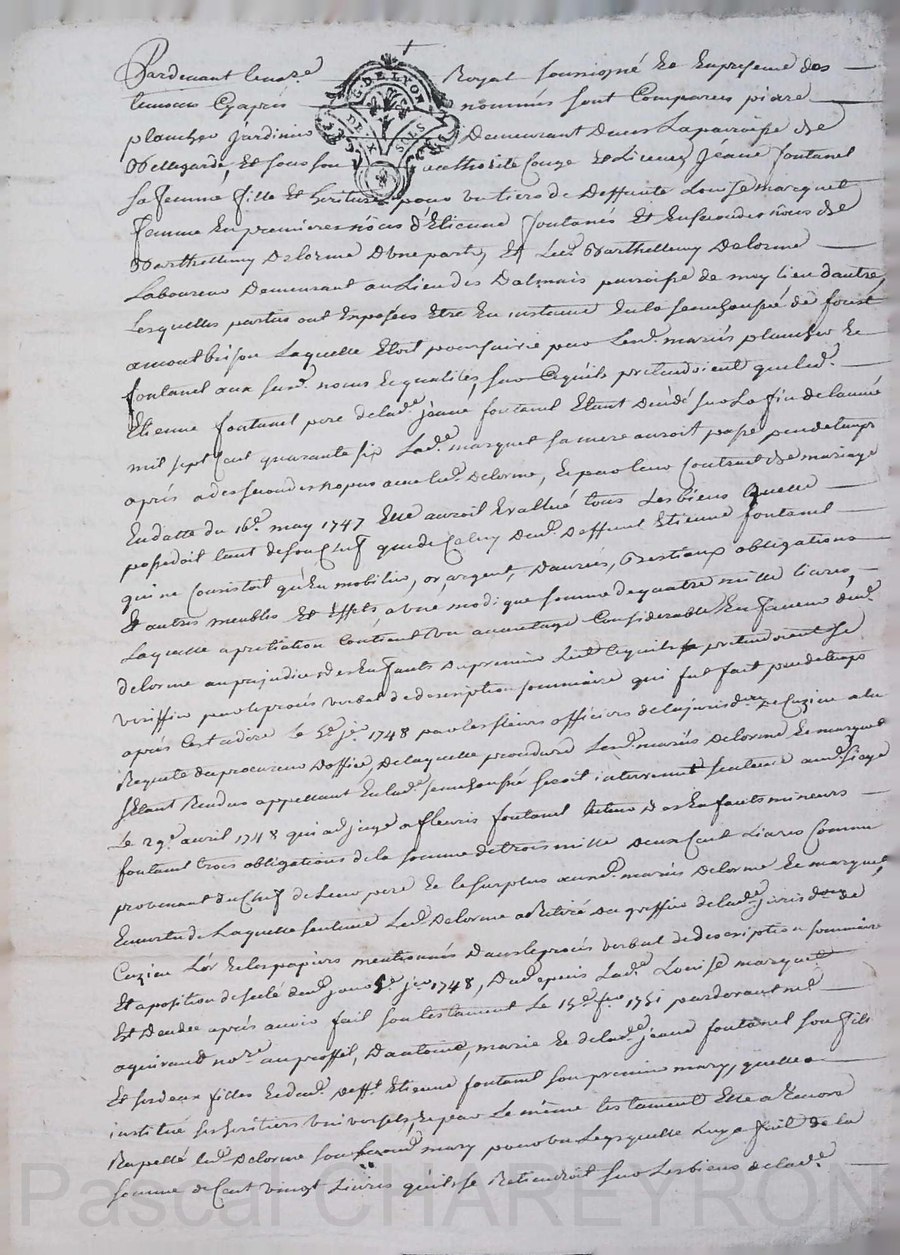 Pardevant le no.re Royal soussigné Et En presence des
temoins Cyapres nommés sont Comparus piare
plancher jardinier Demeurant Dans La paroisse de
Bellegarde, Et sous son authorité Conge Et Licence, Jeane fontanel
sa femme fille Et heritiere pour un tiers de Deffunte Louise marquet
femme En premieres nôces d'Etienne fontanel Et En secondes nôces de
Barthellemy Delorme D'une part, Et led. Barthellemy Delorme
Laboureur Demeurant au Lieu des Dalmais paroisse de d'autre,
Lesquelles parties ont Exposées Etre En instance En la senechaussée de forest
a montbrison Laquelle Etoit poursuivie par Lesd. mariés plancher Et
fontanel aux susd. noms Et qualités, sur Ce qu'ils pretendoient que led.
Etienne fontanel pere de lad.e jeane fontanel Etant Decedé sur La fin de L'année
mil sept Cent quarante six Lad.e marquet sa mere auroit passé peu de temps
après a des secondes nopces avec led. Delorme, Et par leur Contract de mariage
En datte du 16.e may 1747 Elle auroit Evallué tous Les biens quelle
possedoit tant de son Chef que de Celuy dud. Deffunt Etienne fontanel
qui ne Consistoit qu'En mobilier, or, argent, Danrées, Bestiaux obligations
Et autres meubles Et Effets, a une modique somme de quatre mille livres,
Laquelle apretiation Contenoit un avantage Considerable En faveur dud.
delorme au prejudice des Enfants du premier Lit Ce qu'ils pretendoient se
veriffier par le procés verbal de description sommaire qui fut fait peu de temps
après C'est adire le 5.e j.er 1748 par les sieurs officiers de la jurisd.on de Cuzieu a la
Requete du procureur D'office, De laquelle procedure Lesd. mariés Delorme Et marquet
s'Etant Rendus appellant En lad.e senechaussée seroit intervenu sentence aud. siege
Le 29.e avril 1748 qui adjuge a fleuris fontanel tuteur Des Enfants mineurs
fontanel trois obligations de la somme de trois mille Deux Cent Livres Comme
provenant du Chef de Leur pere Et le surplus auxd. mariés Delorme Et marquet,
En vertu de Laquelle sentence Led. Delorme a Retiré du greffier de lad.e jurisd.on de
Cuzieu L'or Et les papiers mentionnés Dans le procés verbal de description sommaire
Et aposition de scelé dud. jour 5.e j.er 1748, Du depuis Lad.e Louise marquet
Est Decedée après avoir fait son testament Le 15.e fev.r 1751 pardevant me
no.re au proffit, D'antoine, marie Et de lad.e jeane fontanel son fils
Et ses deux filles Et dud. deff.t Etienne fontanel son premier mary, quelle a
institué ses heritiers universels, Et par Le même testament Elle a Encore
Rapellé led. Delorme son second mary pour un Legs quelle Luy a fait de la
somme de Cent vingt Livres qu'il se Retiendroit sur Les biens de lad.e
G. DE LYON
DEUX SOLS
Pascal CHAREYRON